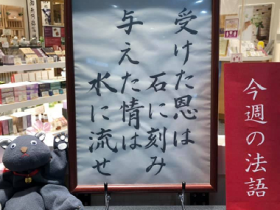 受けた恩は
石に刻み
与えた情は
水に流せ
今週の法語